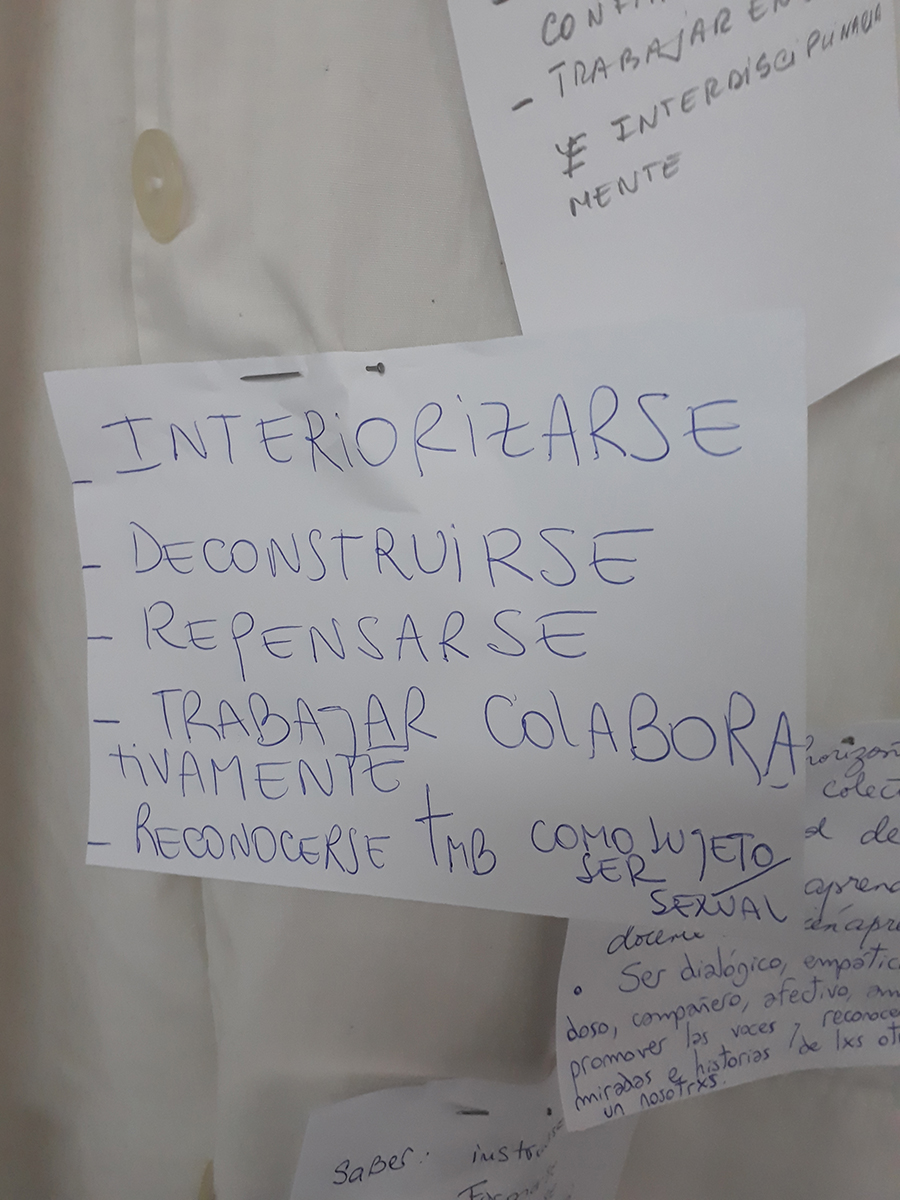 - TRABAJAR EN
E INTERDISCIPLINARIA
MENTE
- INTERIORIZARSE
- DECONSTRUIRSE
- REPENSARSE
- TRABAJAR COLABORA
TIVAMENTE
- RECONOCERSE TMB COMO SUJETO/
SER
SEXUAL
colect
de
aprend
• Ser dialógico, empátic
doso, compañero, afectivo, am
promover las voces, reconoce
miradas e historias de lxs ot
un nosotrxs.
Saber: instr